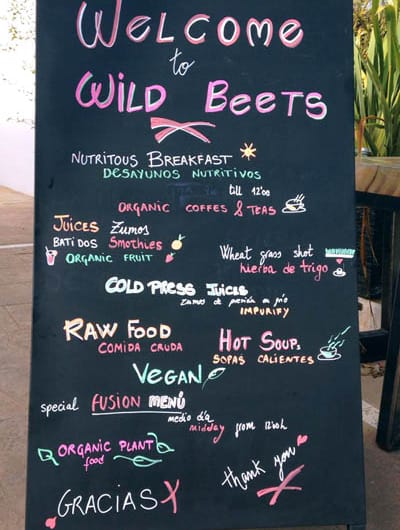 WELCOME
to
WILD BEETS
NUTRITOUS BREAKFAST
DESAYUNOS NUTRITIVOS
till 12'00
ORGANIC COFFES & TEAS
JUICES ZUMOS
BATIDOS SMOTHIES
ORGANIC FRUIT
Wheat grass shot
hierba de trigo
COLD PRESS JUICES
zumos de presión en frío
IMPURIFY
RAW FOOD
COMIDA CRUDA
HOT SOUPS
SOPAS CALIENTES
VEGAN
special FUSION MENÚ
medio día
midday from 12:00h
ORGANIC PLANT
food
thank you
GRACIAS